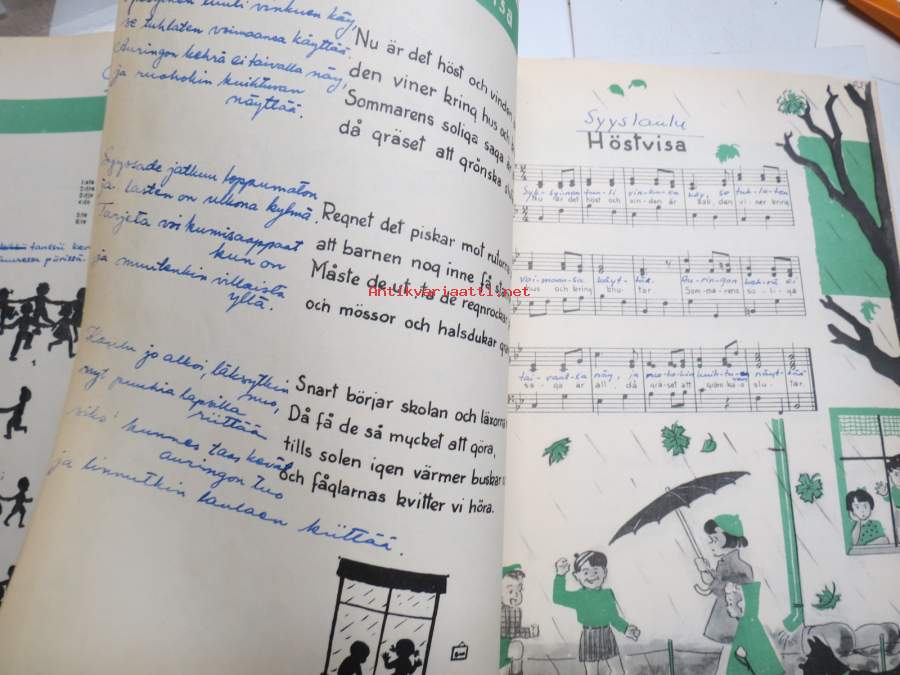 isa
tuuli vinkuen käy,
se tuhlaten voimaansa käyttää.
Auringon kehrä ei taivalla näy,
ja ruohokin kuihtuvan
näyttää.
Syyssade jatkuu loppumaton
ja lasten on ulkona kylmä.
Tarjeta voi kumisaappaat
kun on
ja muutenkin villaista
yllä.
Koulu jo alkoi, läksytkin
muo,
nyt puuhia lapsilla
riittää
siks' kunnes taas kevät
auringon tuo
ja linnutkin laulaen kiittää.
Nu är det höst och vinden
den viner kring hus och
Sommarens soliga saga är
då gräset att grönska
Regnet det piskar mot rutorna
att barnen nog inne få
Måste de ut, ta de regnrockar
och mössor och halsdukar
Snart börjar skolan och läxorna
Då få de så mycket att göra,
tills solen igen värmer buskar
och fåglarnas kvitter vi höra.
Antikvariaatti.net
Syyslaulu
Höstvisa
Syk-syinen tuu-li vin-ku-en käy, se tuh-la-ten
Nu är det höst och vin-den är kall, den vi-ner kring
voi-maan-sa käyt-tää. Au-rin-gon keh-rä ei
hus och kring knu-tar. Som-ma-rens so-li-ga
tai-vaal-la näy, ja ruo-ho-kin kuih-tu-van näyt-tää
sa-ga är all, då grä-set att grön-ska slu-tar.
tanssii